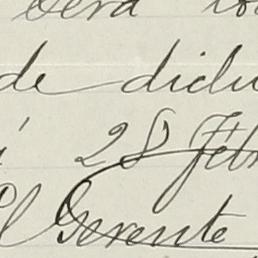 será
de dich
28 Feb
El Gerente